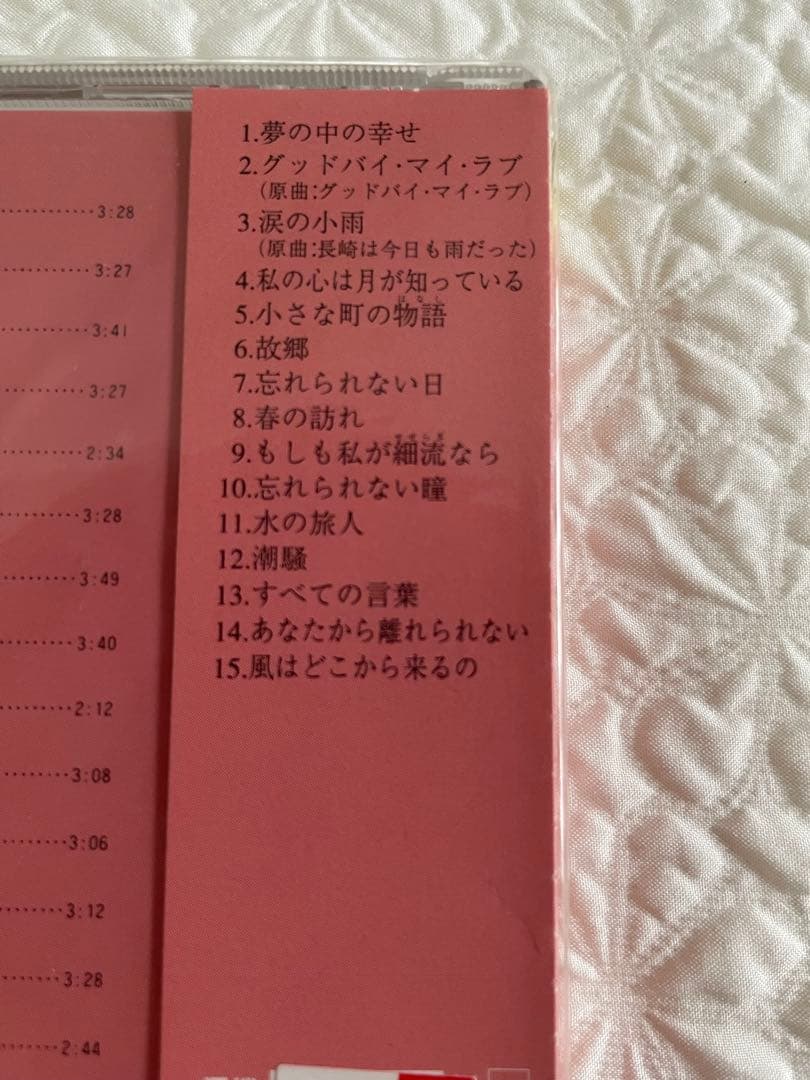 1.夢の中の幸せ
2.グッドバイ・マイ・ラブ
(原曲:グッドバイ・マイ・ラブ)
3.涙の小雨
(原曲:長崎は今日も雨だった)
4.私の心は月が知っている
5.小さな町の物語
はなし
6.故郷
7.忘れられない日
8.春の訪れ
9.もしも私が細流なら
10.忘れられない瞳
11.水の旅人
12.潮騒
13.すべての言葉
14.あなたから離れられない
15.風はどこから来るの
3:28
3:27
3:41
3:27
2:34
3:28
3:49
3:40
2:12
3:08
3:06
3:12
3:28
2:44